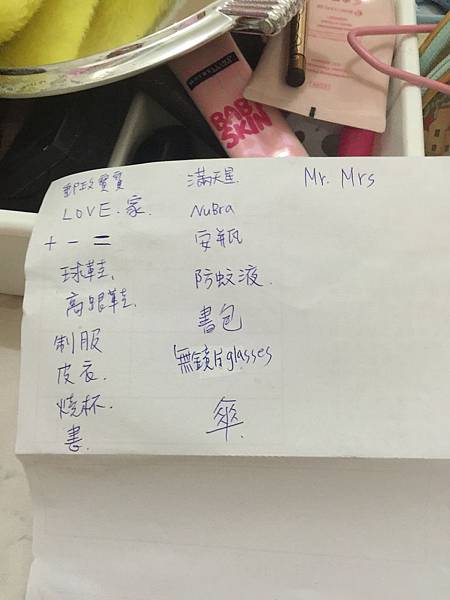 BABY
SKIN
郵政寶寶
LOVE.家.
+ - =
球鞋.
高跟鞋.
制服
皮衣.
燒杯.
書.
滿天星.
NuBra
安瓶
防蚊液.
書包
無鏡片glasses
傘.
Mr. Mrs